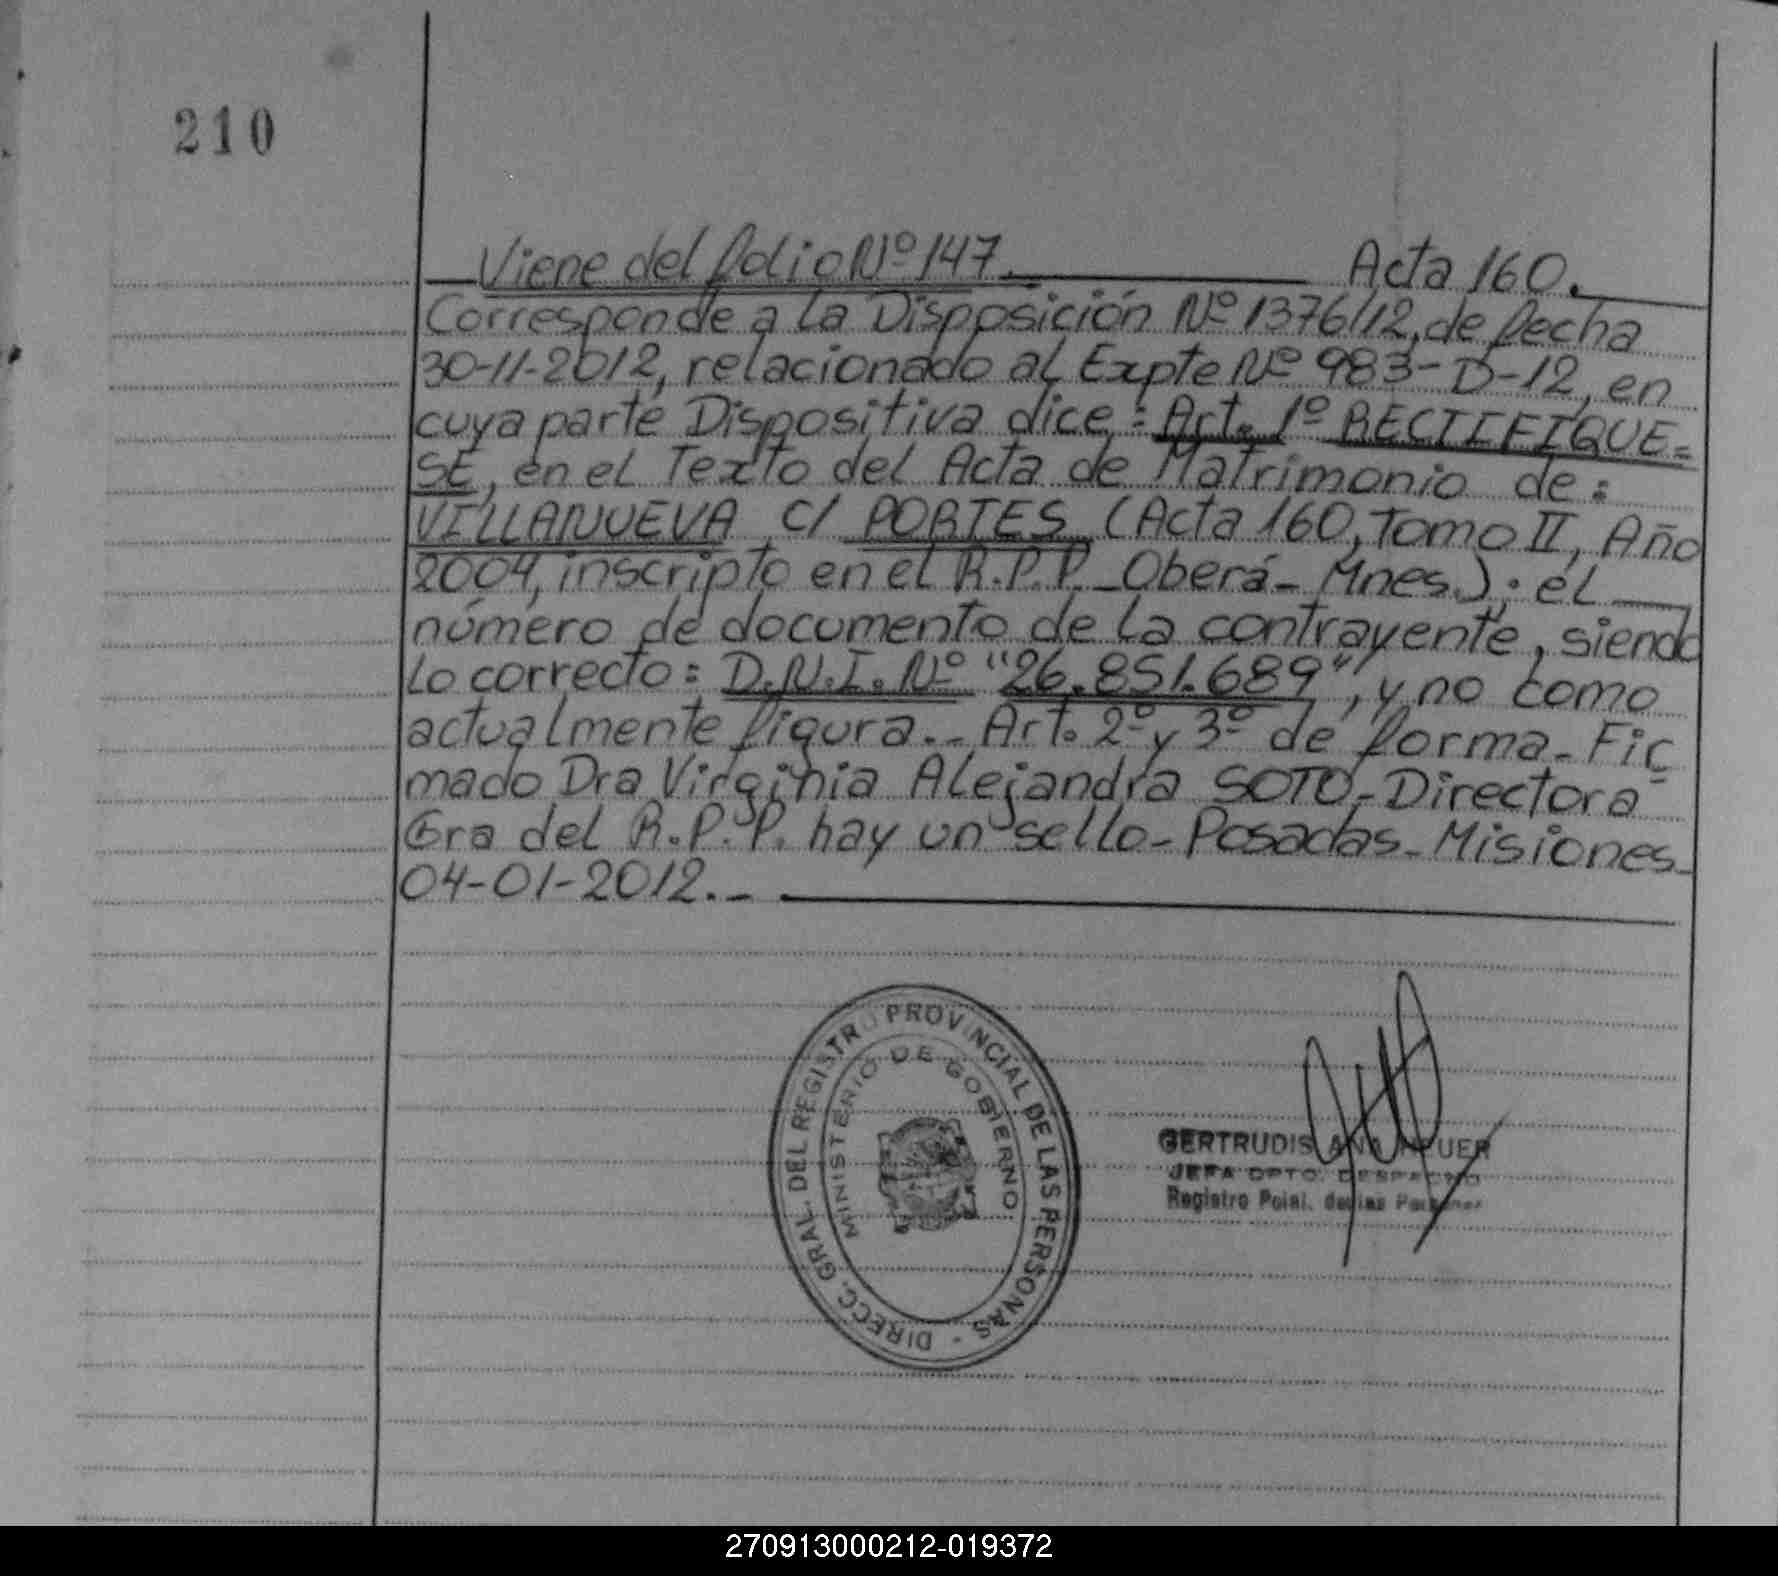 210
Viene del folio Nº 147. Acta 160.
Corresponde a la Disposición Nº 1376/12, de fecha
30-11-2012, relacionado al Expte Nº 983-D-12, en
cuya parte Dispositiva dice: Art. 1º RECTIFIQUE-
SE, en el Texto del Acta de Matrimonio de:
VILLANUEVA c/ PORTES (Acta 160, Tomo II, Año
2004, inscripto en el R.P.P. Oberá- Mnes.); el
número de documento de la contrayente, siendo
lo correcto: D.N.I. Nº "26.851.689", y no como
actualmente figura.- Art. 2º y 3º de forma- Fir
mado Dra Virginia Alejandra SOTO- Directora
Gra del R.P.P. hay un sello- Posadas- Misiones-
04-01-2012.-
DIRECC. GRAL. DEL REGISTRO PROVINCIAL DE LAS PERSONAS -
MINISTERIO DE GOBIERNO
GERTRUDIS ANA
JEFA DPTO. DESPACHO
Registro Pcial. de las Personas
270913000212-019372